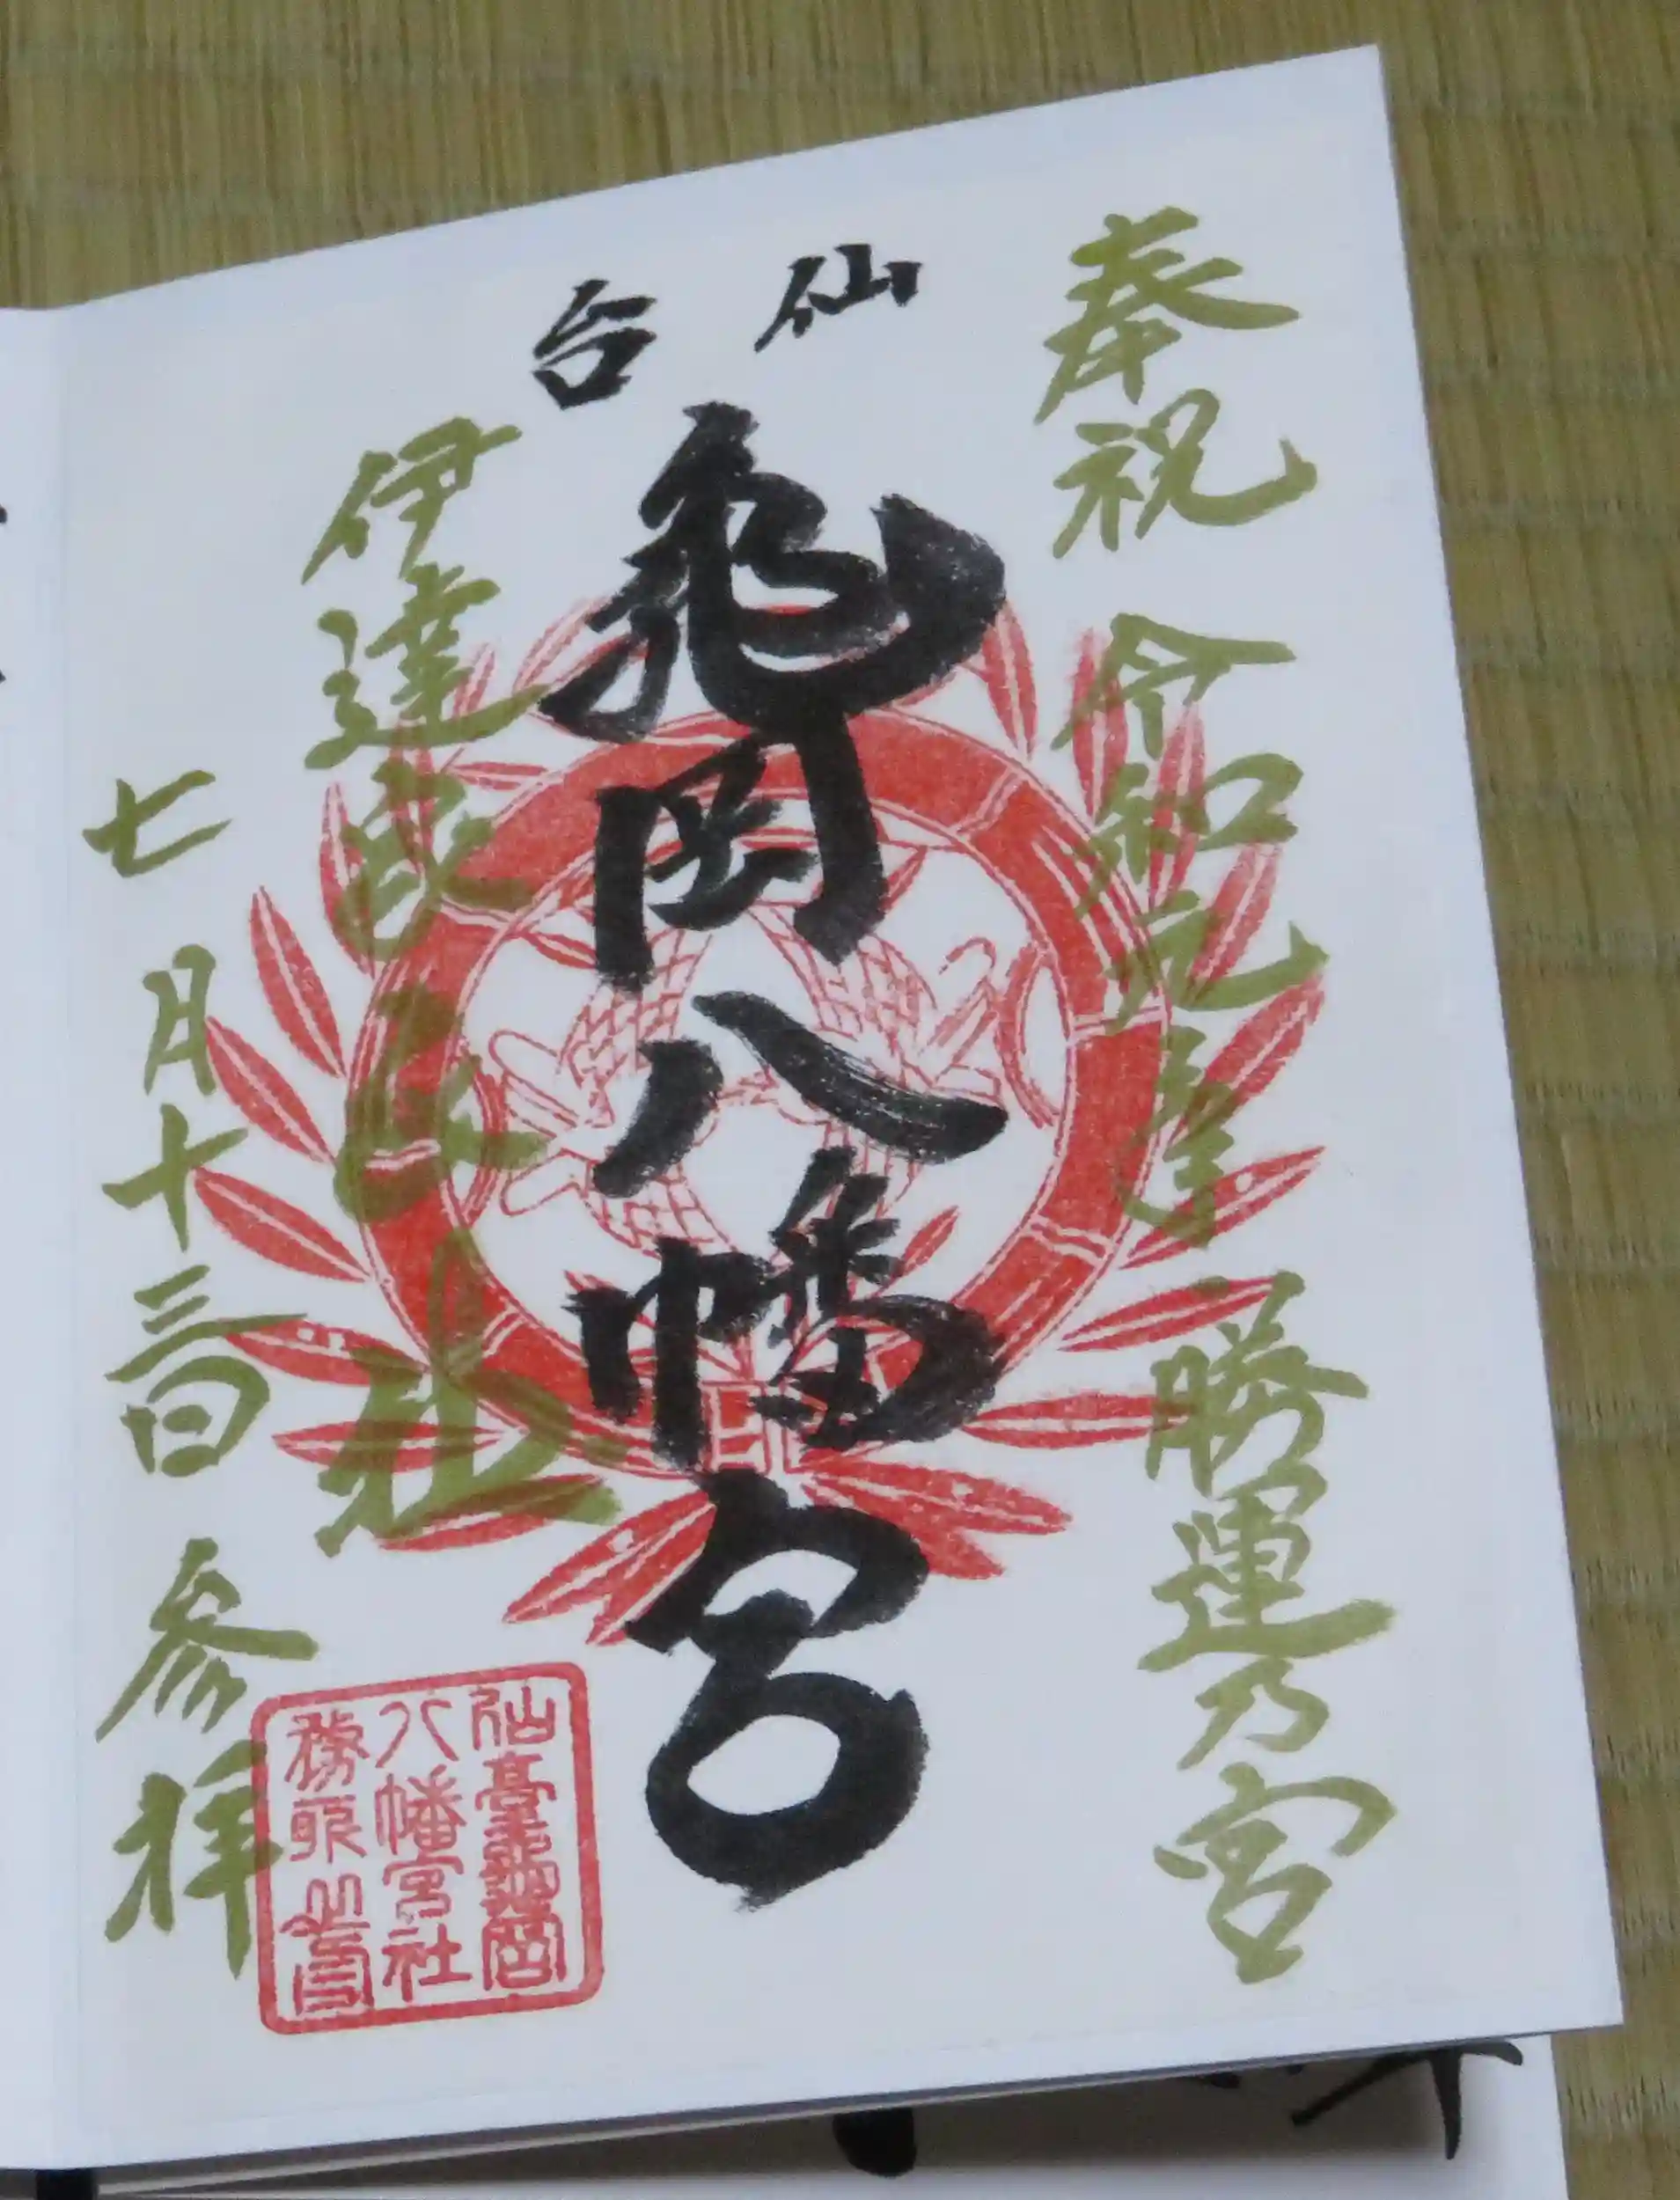 奉祝 令和元年 勝運乃宮
仙台
亀岡八幡宮
伊達家氏神社
七月十三日 参拝
仙臺亀岡
八幡宮社
務所之印